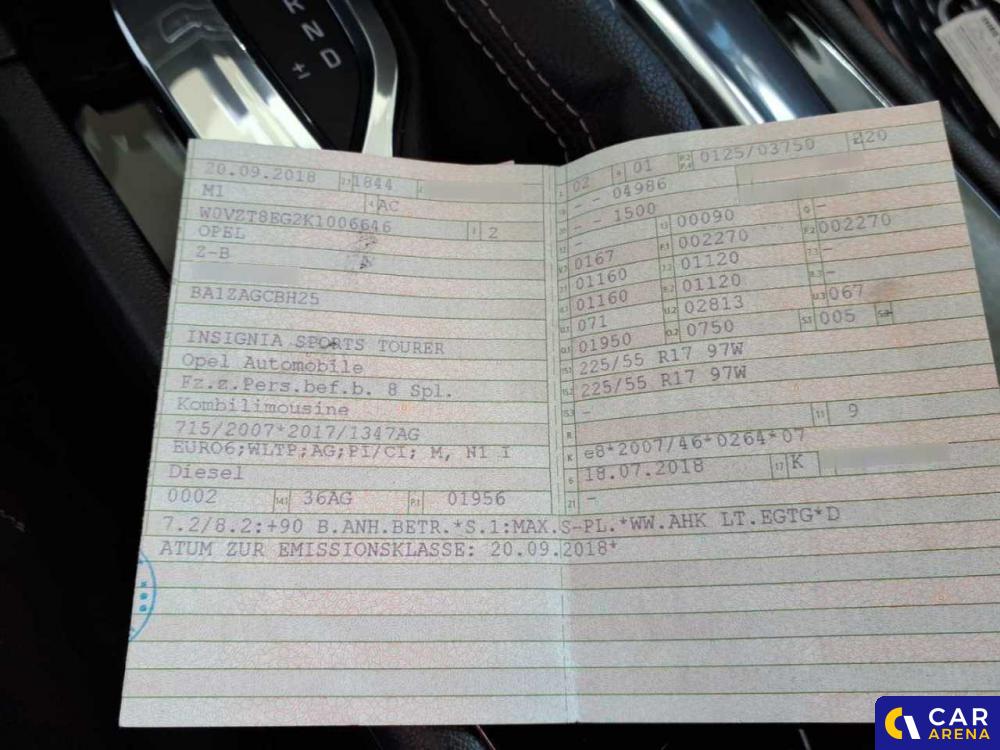 N
D
+
20.09.2018 1844
M1 AC
W0VZT8EG2K1006646 2
OPEL
Z-B
BA1ZAGCBH25
INSIGNIA SPORTS TOURER
Opel Automobile
Fz.z.Pers.bef.b. 8 Spl.
Kombilimousine
715/2007*2017/1347AG
EURO6;WLTP;AG;PI/CI; M, N1 I
Diesel
0002 14.1 36AG P.1 01956
02 9 01 P.2 P.4 0125/03750 220
- - 04986
- - 1500
- 13 00090 Q -
0167 F.1 002270 F.2 002270
01160 7.2 01120 7.3 -
01160 8.2 01120 8.3 -
071 U.2 02813 U.3 067
01950 O.2 0750 S.1 005 S.2
15.1 225/55 R17 97W
15.2 225/55 R17 97W
15.3 -
R 11 9
K e8*2007/46*0264*07
6 18.07.2018 17 K
21 -
7.2/8.2:+90 B.ANH.BETR.*S.1:MAX.S-PL.*WW.AHK LT.EGTG*D
ATUM ZUR EMISSIONSKLASSE: 20.09.2018*
CAR
ARENA